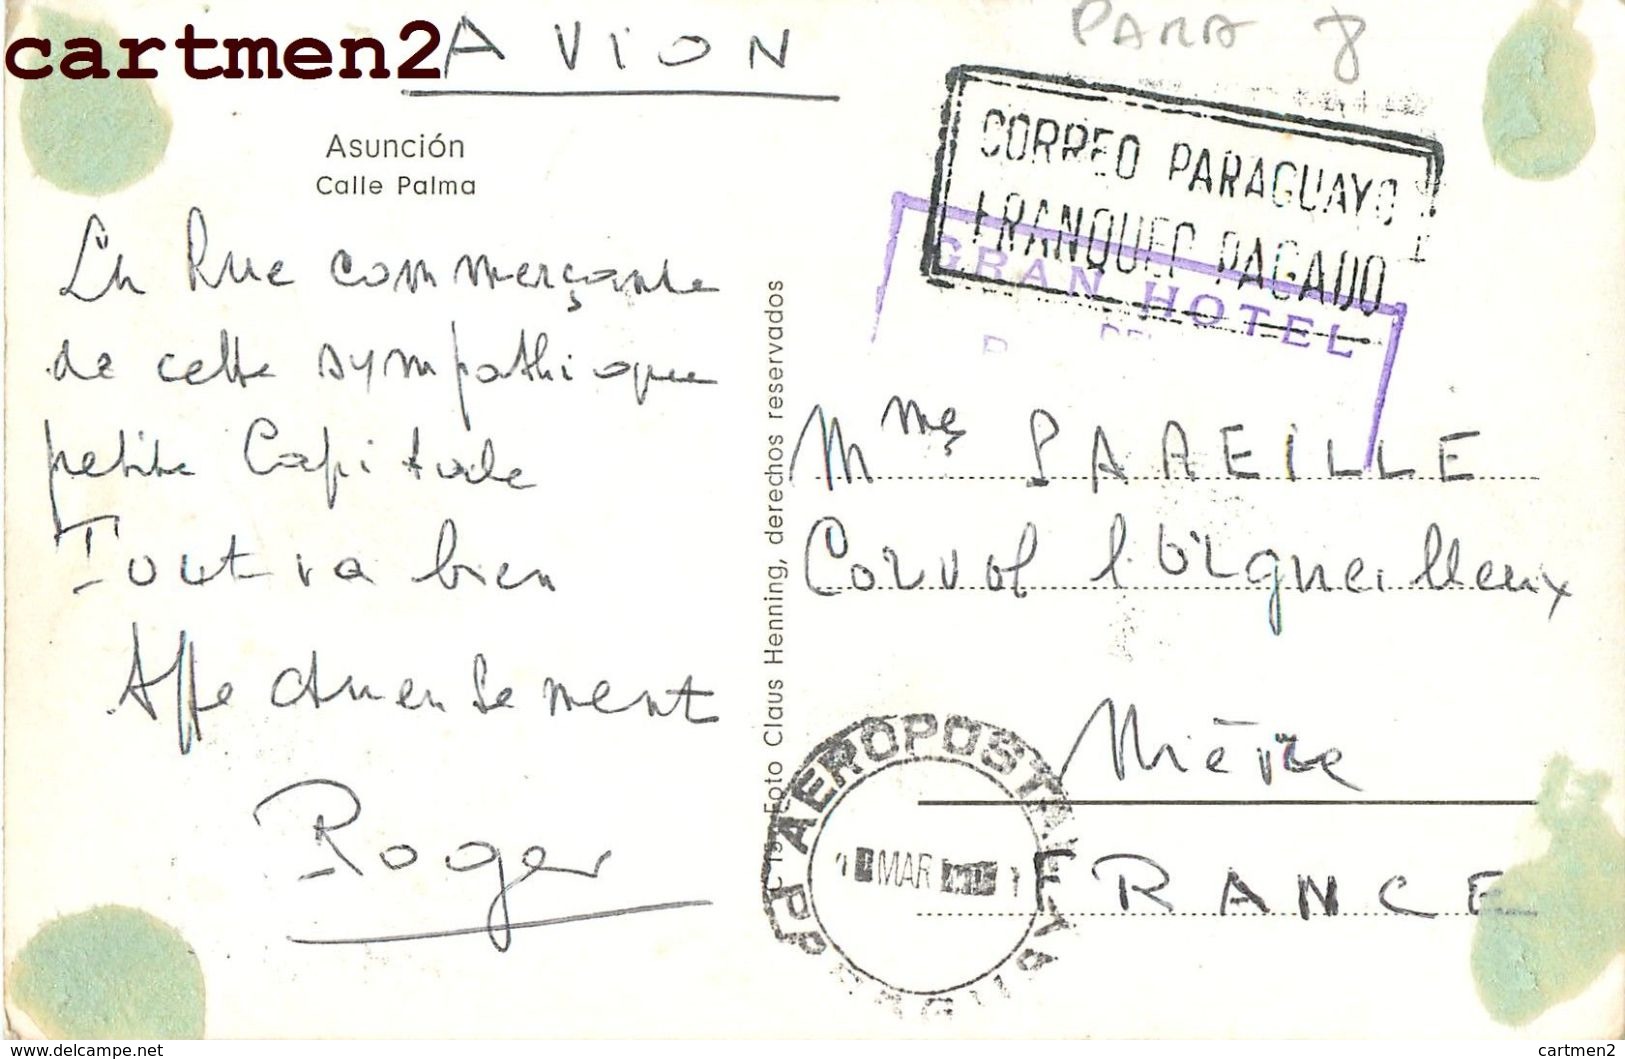 cartmen2
AVION
PARA 8
Asunción
Calle Palma
CORREO PARAGUAYO
FRANQUEO PAGADO
GRAN HOTEL
DE
La Rue commerçante
de cette sympathique
petite Capitale
Tout va bien
Affectueusement
Roger
Foto Claus Henning, derechos reservados
Mme PAREILLE
Corvol l'Orgueilleux
Nièvre
FRANCE
AEROPOSTAL
MAR
PARAGUAY
www.delcampe.net
cartmen2